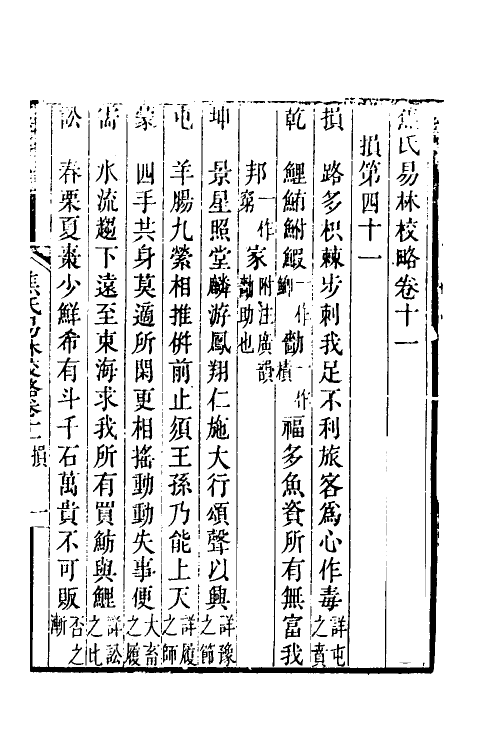 焦氏易林校略卷十一
損第四十一
損　路多枳棘步刺我足不利旅客爲心作毒詳屯之賁
乾　鯉鮪鮒鰕一作鰂勸一作積福多魚資所有無富我
邦一作窮家附注廣韻勸助也
坤　景星照堂麟游鳳翔仁施大行頌聲以興詳豫之節
屯　羊腸九縈相推併前止須王孫乃能上天詳履之師
蒙　四手共身莫適所閑更相搖動動失事便大畜之履
需　水流趨下遠至東海求我所有買魴與鯉詳訟之比
訟　春栗夏棗少鮮希有斗千石萬貴不可販否之漸
焦氏易林校略卷十一　損　一